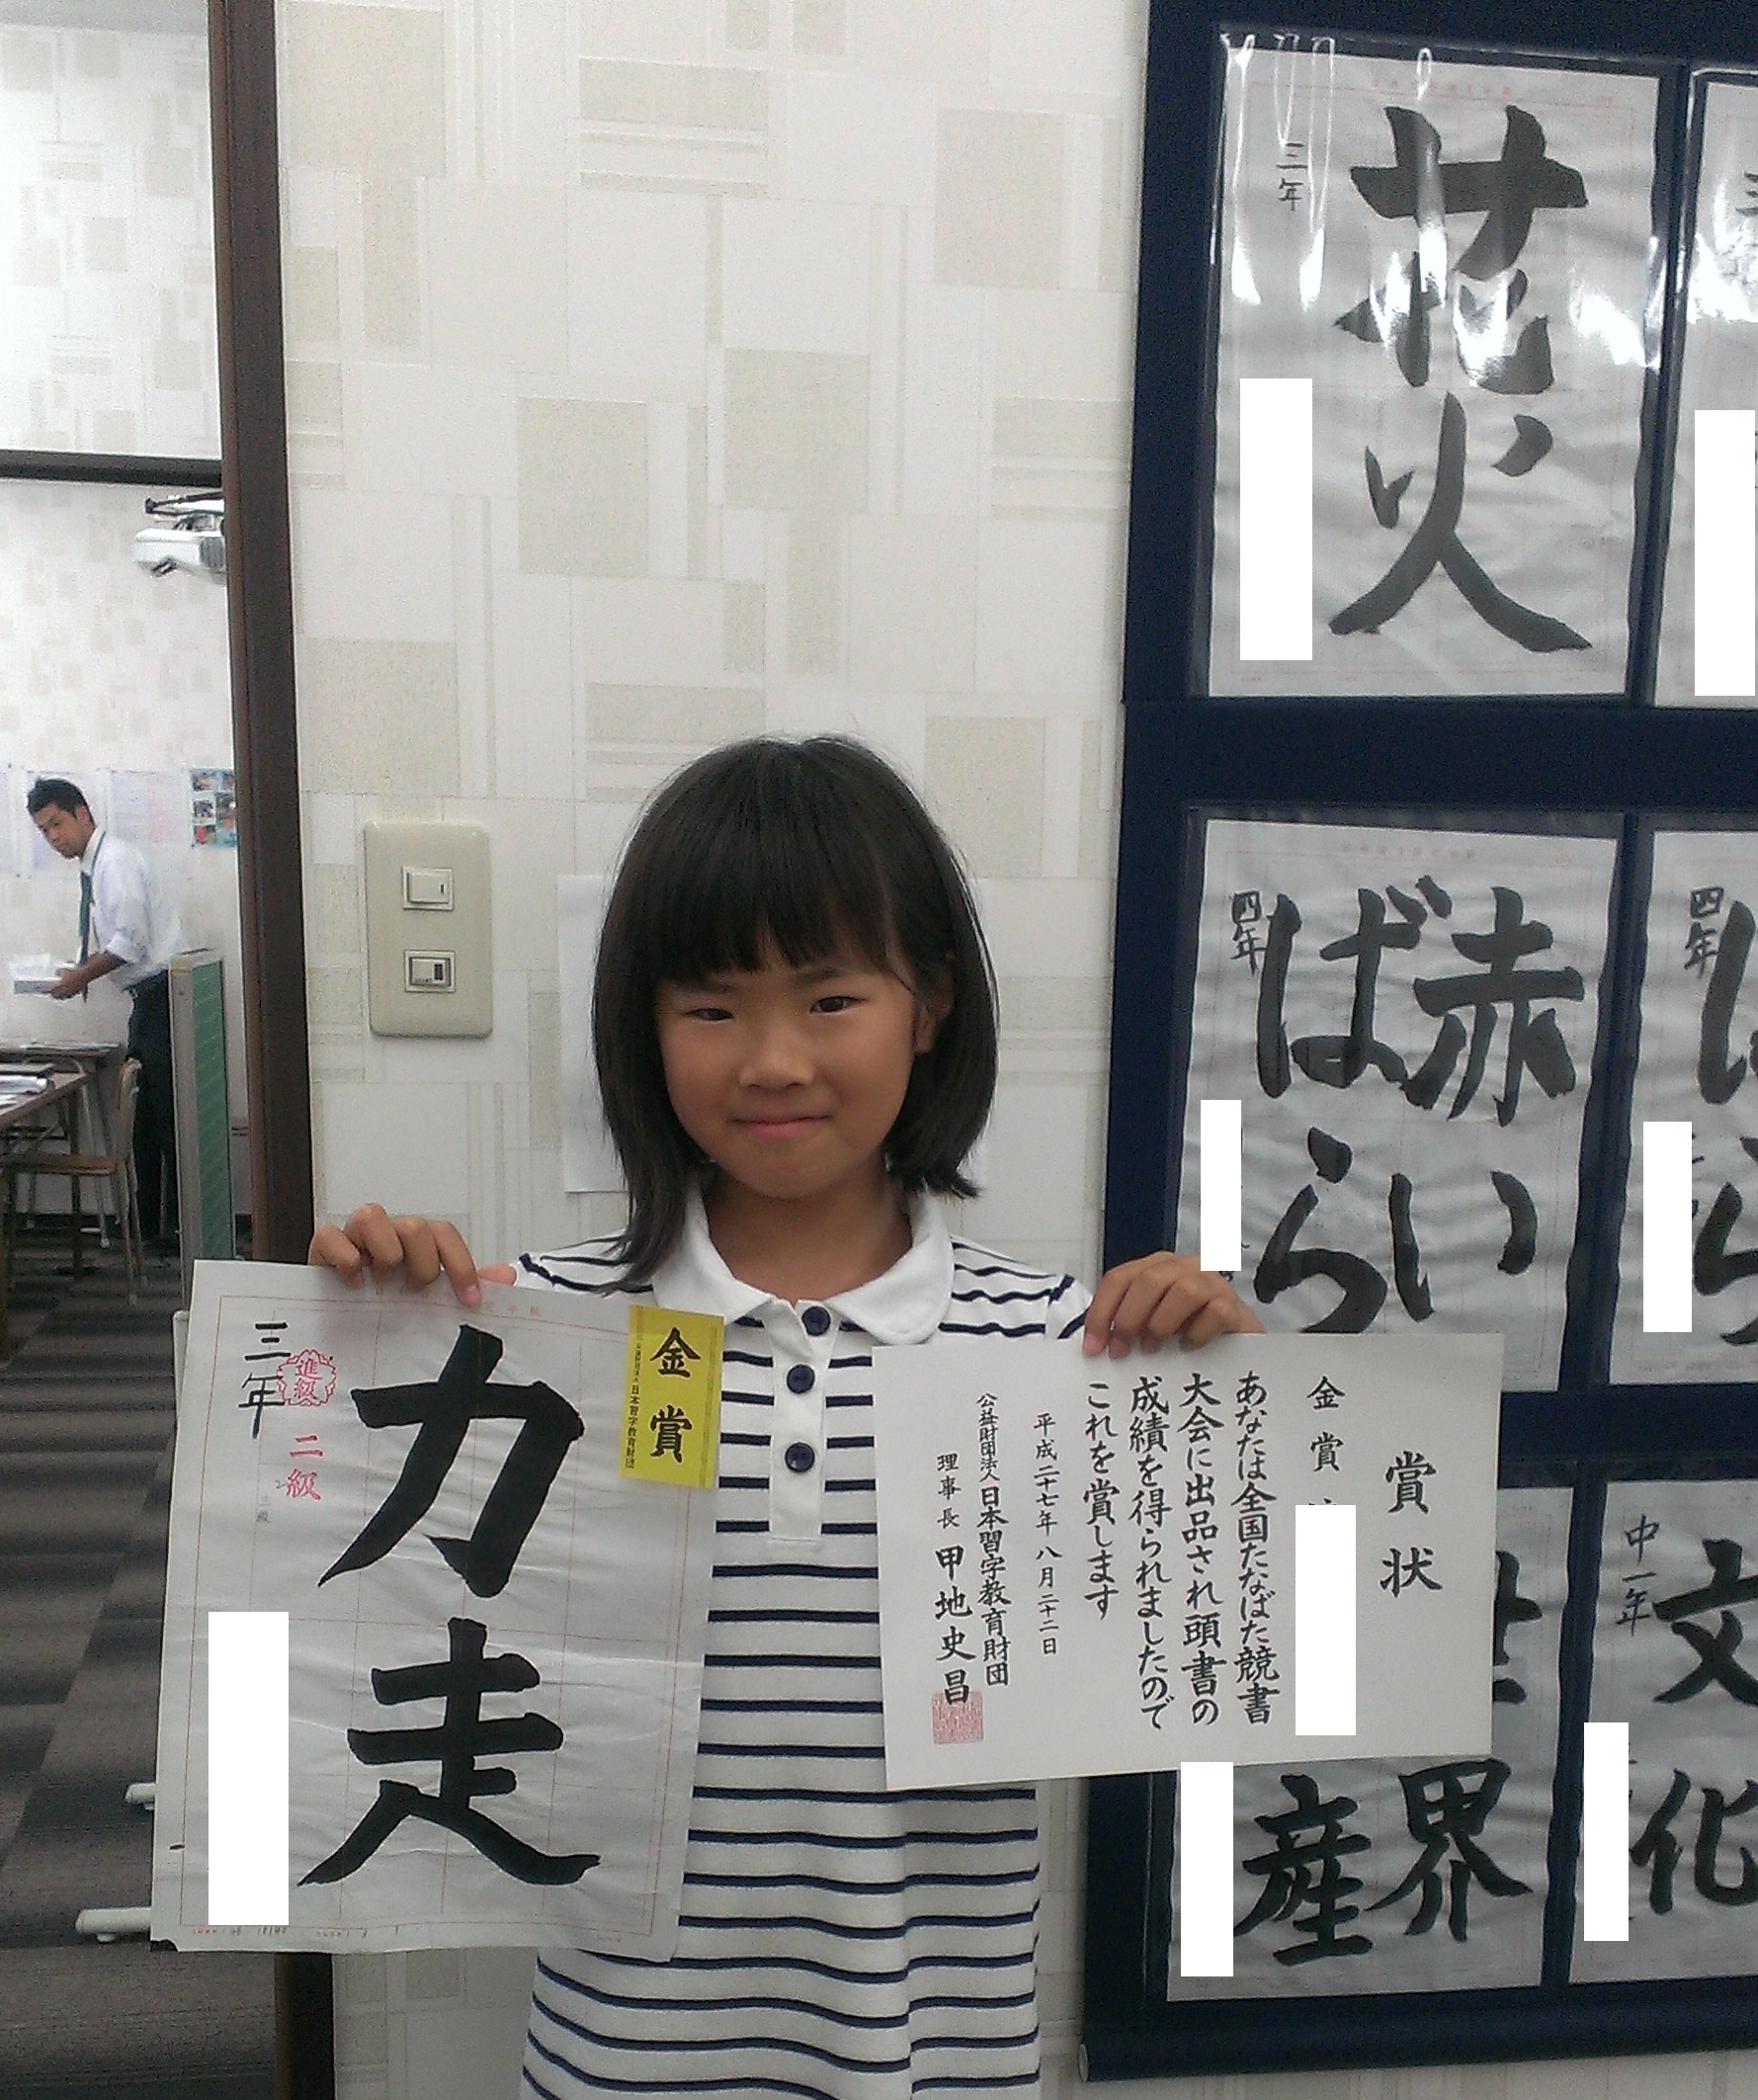 花火
三年
赤い
ばら
四年
四年
金賞
日本習字教育財団
力走
三年
進級
二級
三級
賞状
金賞
あなたは全国たなばた競書
大会に出品され頭書の
成績を得られましたので
これを賞します
平成二十七年八月二十二日
公益財団法人日本習字教育財団
理事長 甲地史昌
界
産
文化
中一年